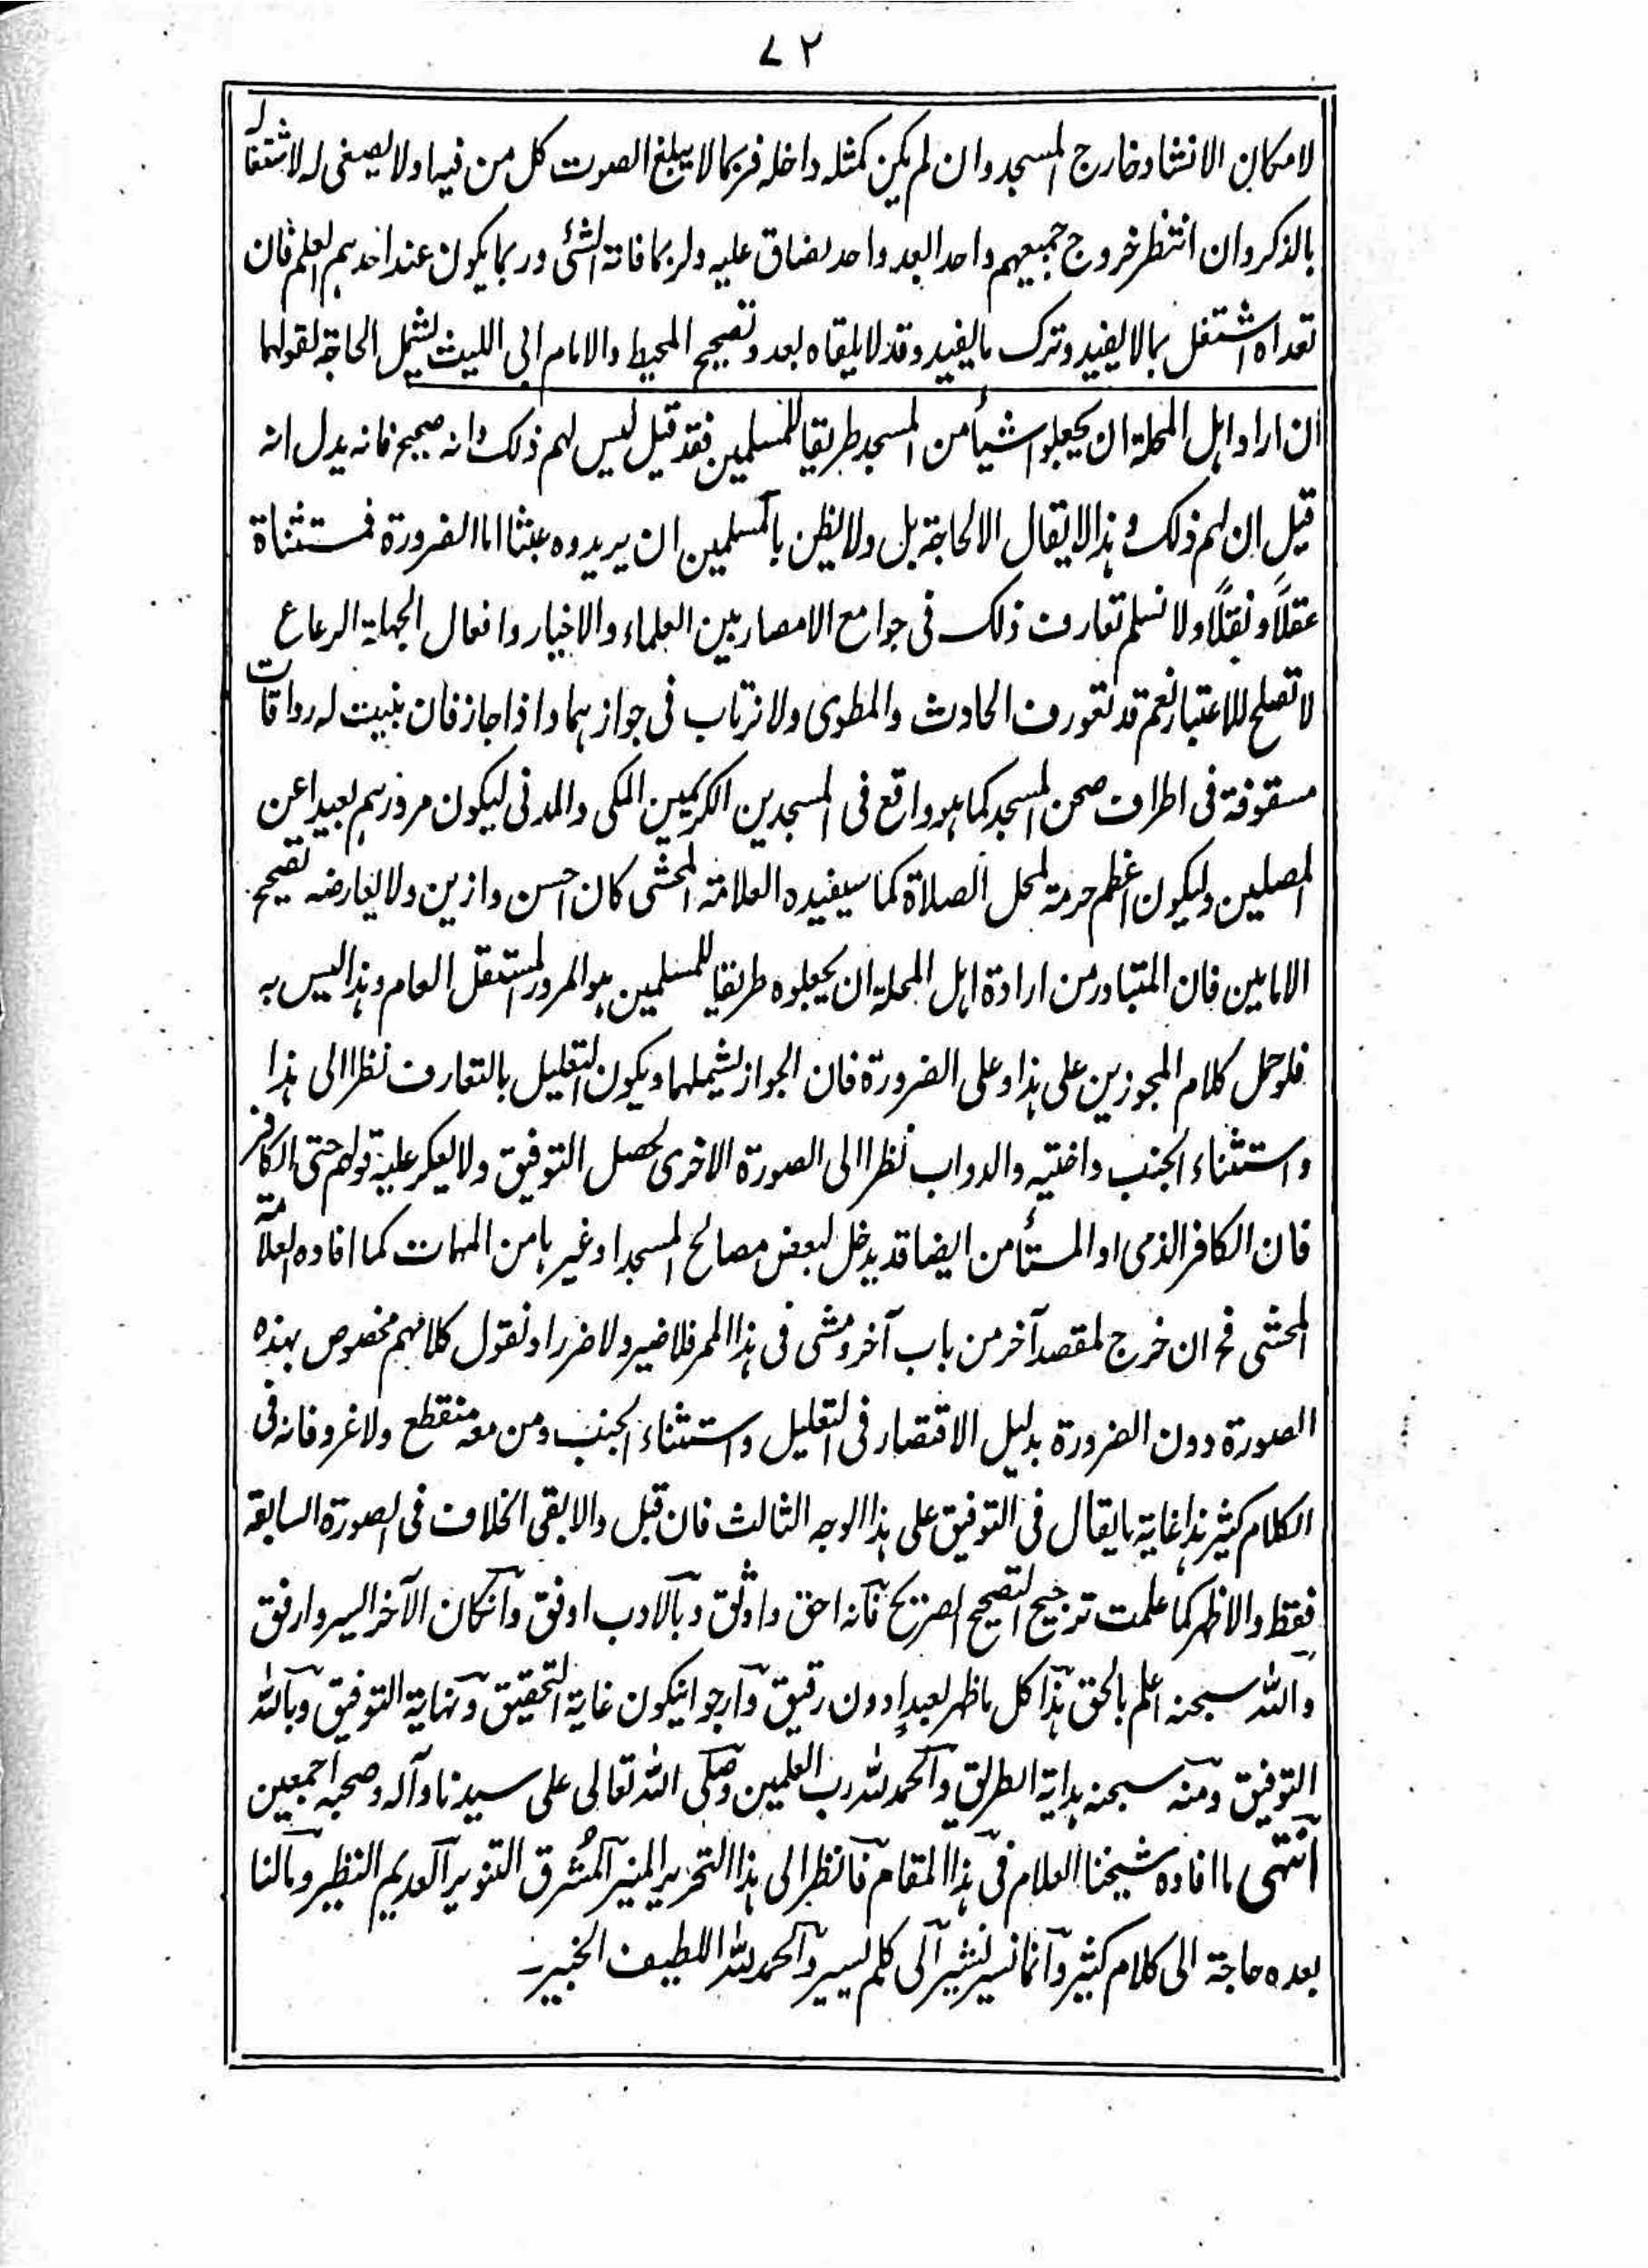 ٧٢
لامكان الانشاد خارج المسجد وان لم يكن كمثله داخله فربما لا يبلغ الصوت كل من فيها ولا يصغى له لاشتغاله
بالذكر وان انتظر خروج جميعهم واحدا بعد واحد لضاق عليه ولربما فاته الشئ وربما يكون عند احدهم العلم فان
تعداه اشتغل بما لا يفيد وترك ما يفيد وقد لا يلقاه بعد وتصحيح المحيط والامام ابى الليث يشمل الحاجة لقولهما
ان اراد اهل المحلة ان يجعلوا شيأ من المسجد طريقا للمسلمين فقد قيل ليس لهم ذلك وانه صحيح فانه يدل انه
قيل ان لهم ذلك وهذا لا يقال الا لحاجة بل ولا يظن بالمسلمين ان يريدوه عبثا اما الضرورة فمستثناة
عقلاً ونقلاً ولا نسلم تعارف ذلك فى جوامع الامصار بين العلماء والاخيار وافعال الجهلة الرعاع
لا تصلح للاعتبار نعم قد تعورف الحادث والمطوى ولا نرتاب فى جوازهما واذا جاز فان بنيت له رواقات
مسقوفة فى اطراف صحن المسجد كما هو واقع فى المسجدين الكريمين المكى والمدنى ليكون مرورهم بعيدا عن
المصلين وليكون اعظم حرمة لمحل الصلاة كما سيفيده العلامة المحشى كان احسن وازين ولا يعارضه تصحيح
الامامين فان المتبادر من ارادة اهل المحلة ان يجعلوه طريقا للمسلمين هو المرور المستقل العام وهذا ليس به
فلو حمل كلام المجوزين على هذا وعلى الضرورة فان الجواز يشملهما ويكون التعليل بالتعارف نظرا الى هذا
واستثناء الجنب واختيه والدواب نظرا الى الصورة الاخرى لحصل التوفيق ولا يعكر عليه قولهم حتى الكافر
فان الكافر الذمى او المستأمن ايضا قد يدخل لبعض مصالح المسجد او غيرها من المهمات كما افاده العلامة
المحشى فح ان خرج لمقصد آخر من باب آخر ومشى فى هذا الممر فلا ضير ولا ضرر او نقول كلامهم مخصوص بهذه
الصورة دون الضرورة بدليل الاقتصار فى التعليل واستثناء الجنب ومن معه منقطع ولا غرو فانه فى
الكلام كثير هذا غاية ما يقال فى التوفيق على هذا الوجه الثالث فان قبل والا بقى الخلاف فى الصورة السابقة
فقط والاظهر كما علمت ترجيح التصحيح الصريح فانه احق واوثق وبالادب اوفق وان كان الآخر ايسر وارفق
والله سبحنه اعلم بالحق هذا كل ما ظهر لعبد دون رقيق وارجو ان يكون غاية التحقيق ونهاية التوفيق وبالله
التوفيق ومنه سبحنه هداية الطريق والحمد لله رب العلمين وصلى الله تعالى على سيدنا وآله وصحبه اجمعين
انتهى ما افاده شيخنا العلام فى هذا المقام فانظر الى هذا التحرير المنير المُشرق التنوير العديم النظير وما لنا
بعده حاجة الى كلام كثير وانما نسير نشير الى كلم يسير والحمد لله اللطيف الخبير۔